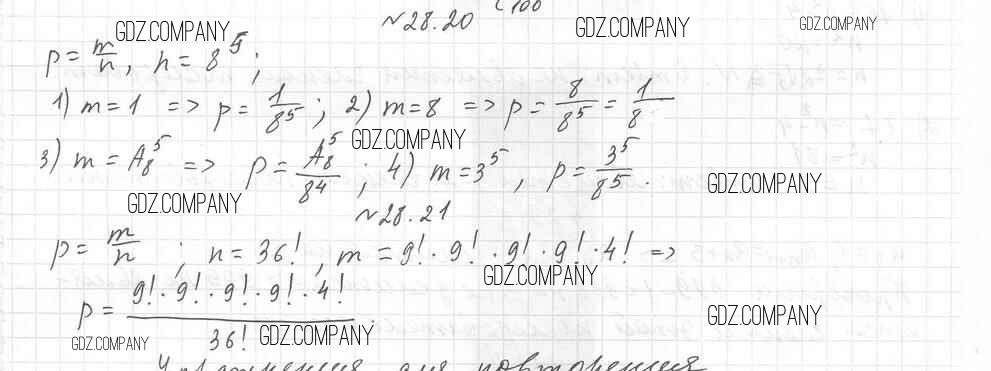 №28.20
GDZ.COMPANY GDZ.COMPANY GDZ.COMPANY
p = m/n, n = 8^5;
1) m = 1 => p = 1/8^5; 2) m = 8 => p = 8/8^5 = 1/8
GDZ.COMPANY
3) m = A_8^5 => p = A_8^5/8^4; 4) m = 3^5, p = 3^5/8^5.
GDZ.COMPANY GDZ.COMPANY
№28.21
p = m/n; n = 36!, m = 9! · 9! · 9! · 9! · 4! =>
GDZ.COMPANY
p = 9! · 9! · 9! · 9! · 4!/36!
GDZ.COMPANY GDZ.COMPANY GDZ.COMPANY
для повторения